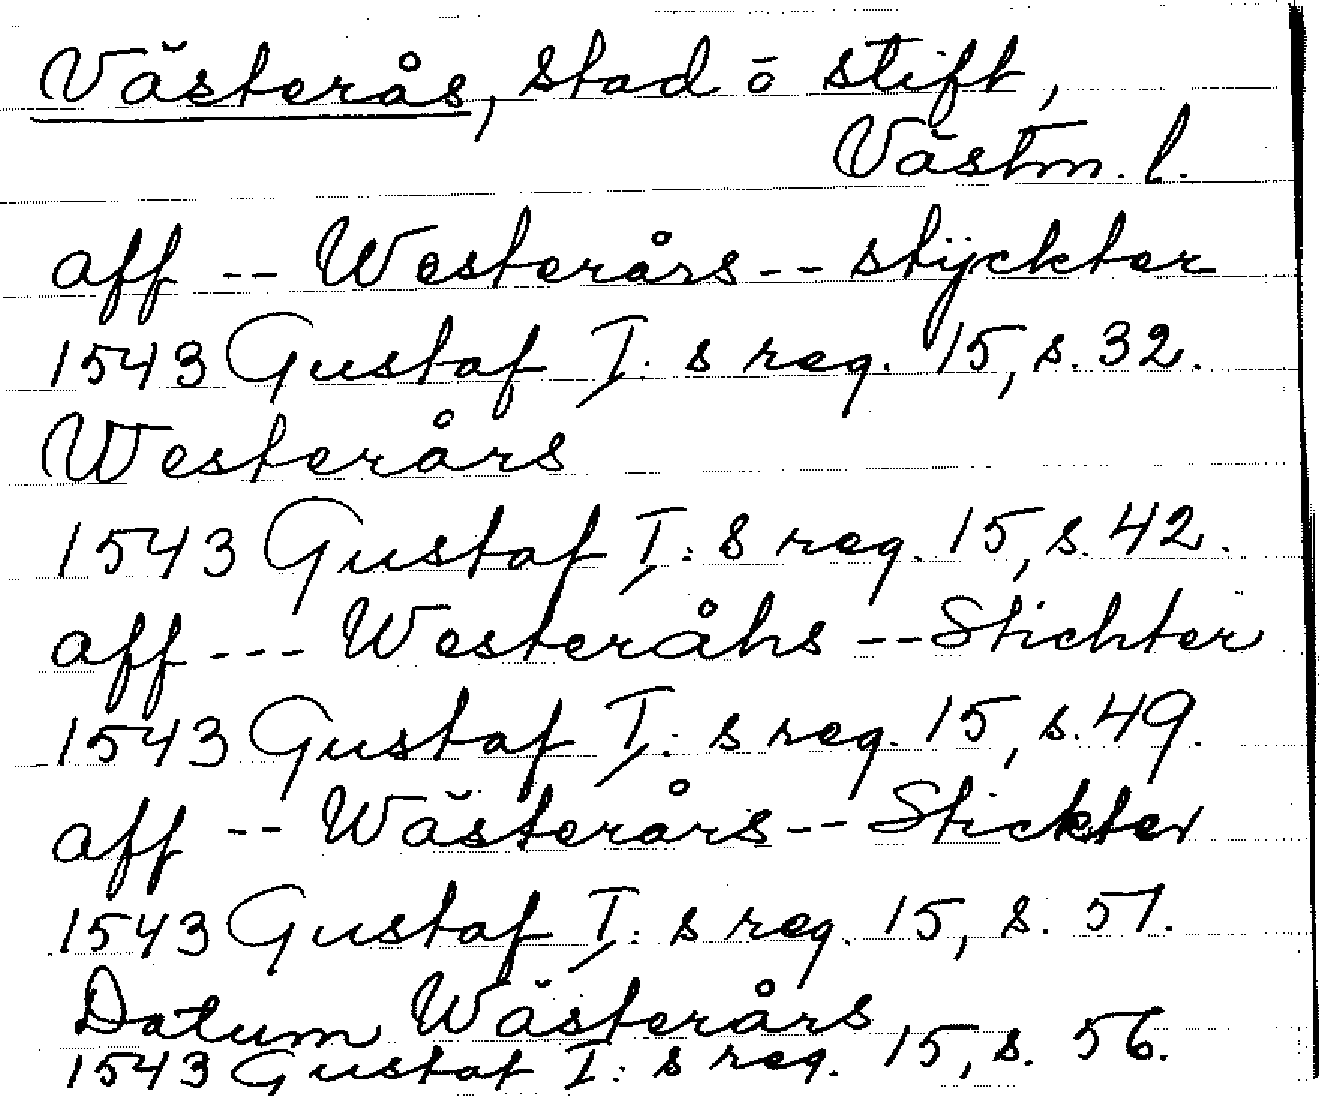 Västerås, stad o stift,
Västm. l.
aff -- Westerårs -- stÿckter
1543 Gustaf I: s reg. 15, s. 32.
Westerårs
1543 Gustaf I: s reg. 15, s. 42.
aff --- Westeråhs -- Stichter
1543 Gustaf I: s reg. 15, s. 49.
aff -- Wästerårs -- Stickter
1543 Gustaf I: s reg. 15, s. 51.
Datum Wästerårs
1543 Gustaf I: s reg. 15, s. 56.